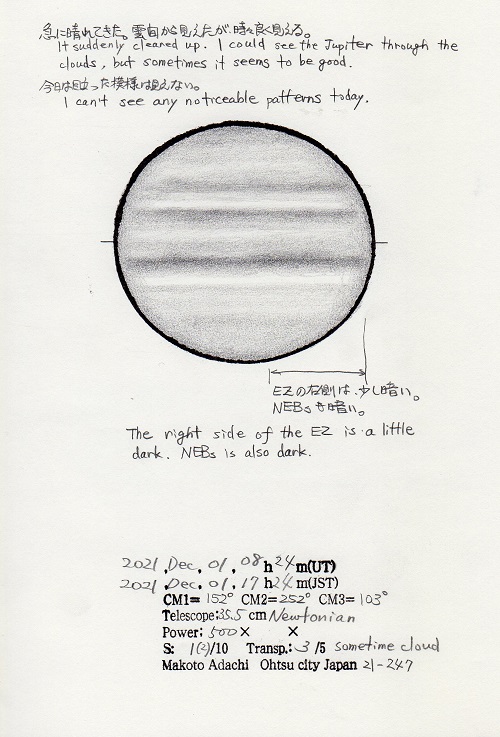 急に晴れてきた。雲間から見えたが、時々良く見える。
It suddenly cleared up. I could see the Jupiter through the
clouds, but sometimes it seems to be good.
今日は目立った模様は見えない。
I can't see any noticeable patterns today.
EZの右側は、少し暗い。
NEBsも暗い。
The right side of the EZ is a little
dark. NEBs is also dark.
2021, Dec, 01, 08h24m(UT)
2021, Dec, 01, 17h24m(JST)
CM1= 152° CM2=252° CM3= 103°
Telescope:35.5 cm Newtonian
Power: 500× ×
S: 1(2)/10 Transp.: 3 /5 sometime cloud
Makoto Adachi Ohtsu city Japan 21-247